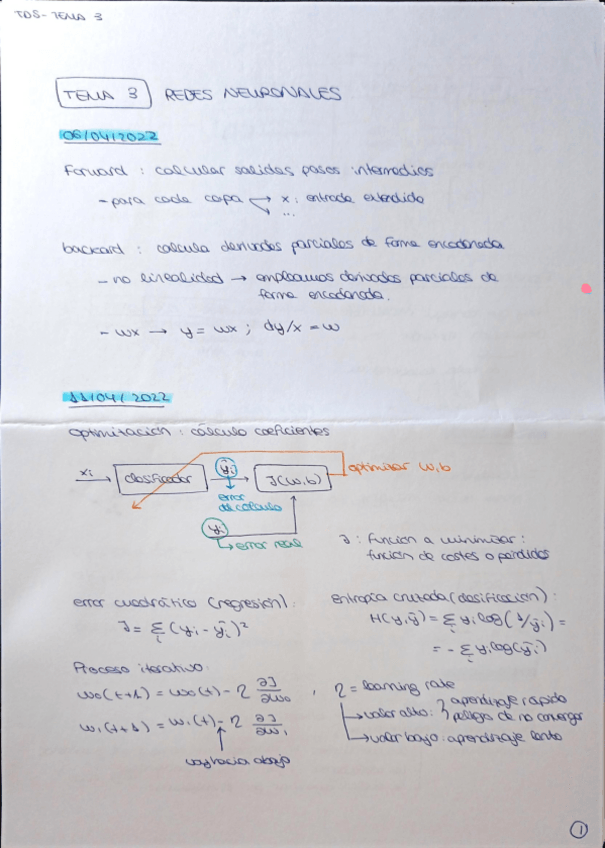 TDS - TEMA 3
TEMA 3 REDES NEURONALES
06/04/2022
Forward : calcular salidas pasos intermedios
- para cada capa → x: entrada extendida
...
backard : calcula derivadas parciales de forma encadenada
- no linealidad → empleamos derivadas parciales de
forma encadenada.
- wx → y = wx ; dy/x = w
11/04/2022
optimización : cálculo coeficientes
xi clasificador ŷi J(w,b) optimizar w,b
error
de cálculo
yi
error real
J : función a minimizar :
función de costes o pérdidas
error cuadrático (regresión) :
J = Σi (yi - ŷi)²
entropía cruzada (clasificación) :
H(y,ŷ) = Σi yi log(1/ŷi) =
= - Σi yi log(ŷi)
Proceso iterativo:
w0(t+1) = w0(t) - η ∂J/∂w0 ,
w1(t+1) = w1(t) - η ∂J/∂w1
voy hacia abajo
η = learning rate
→ valor alto : } aprendizaje rápido
peligro de no converger
→ valor bajo : aprendizaje lento
1